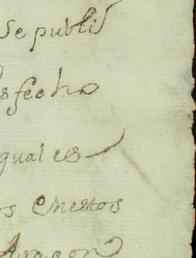 se publis
sfecho
quales
os enestos
Aragon